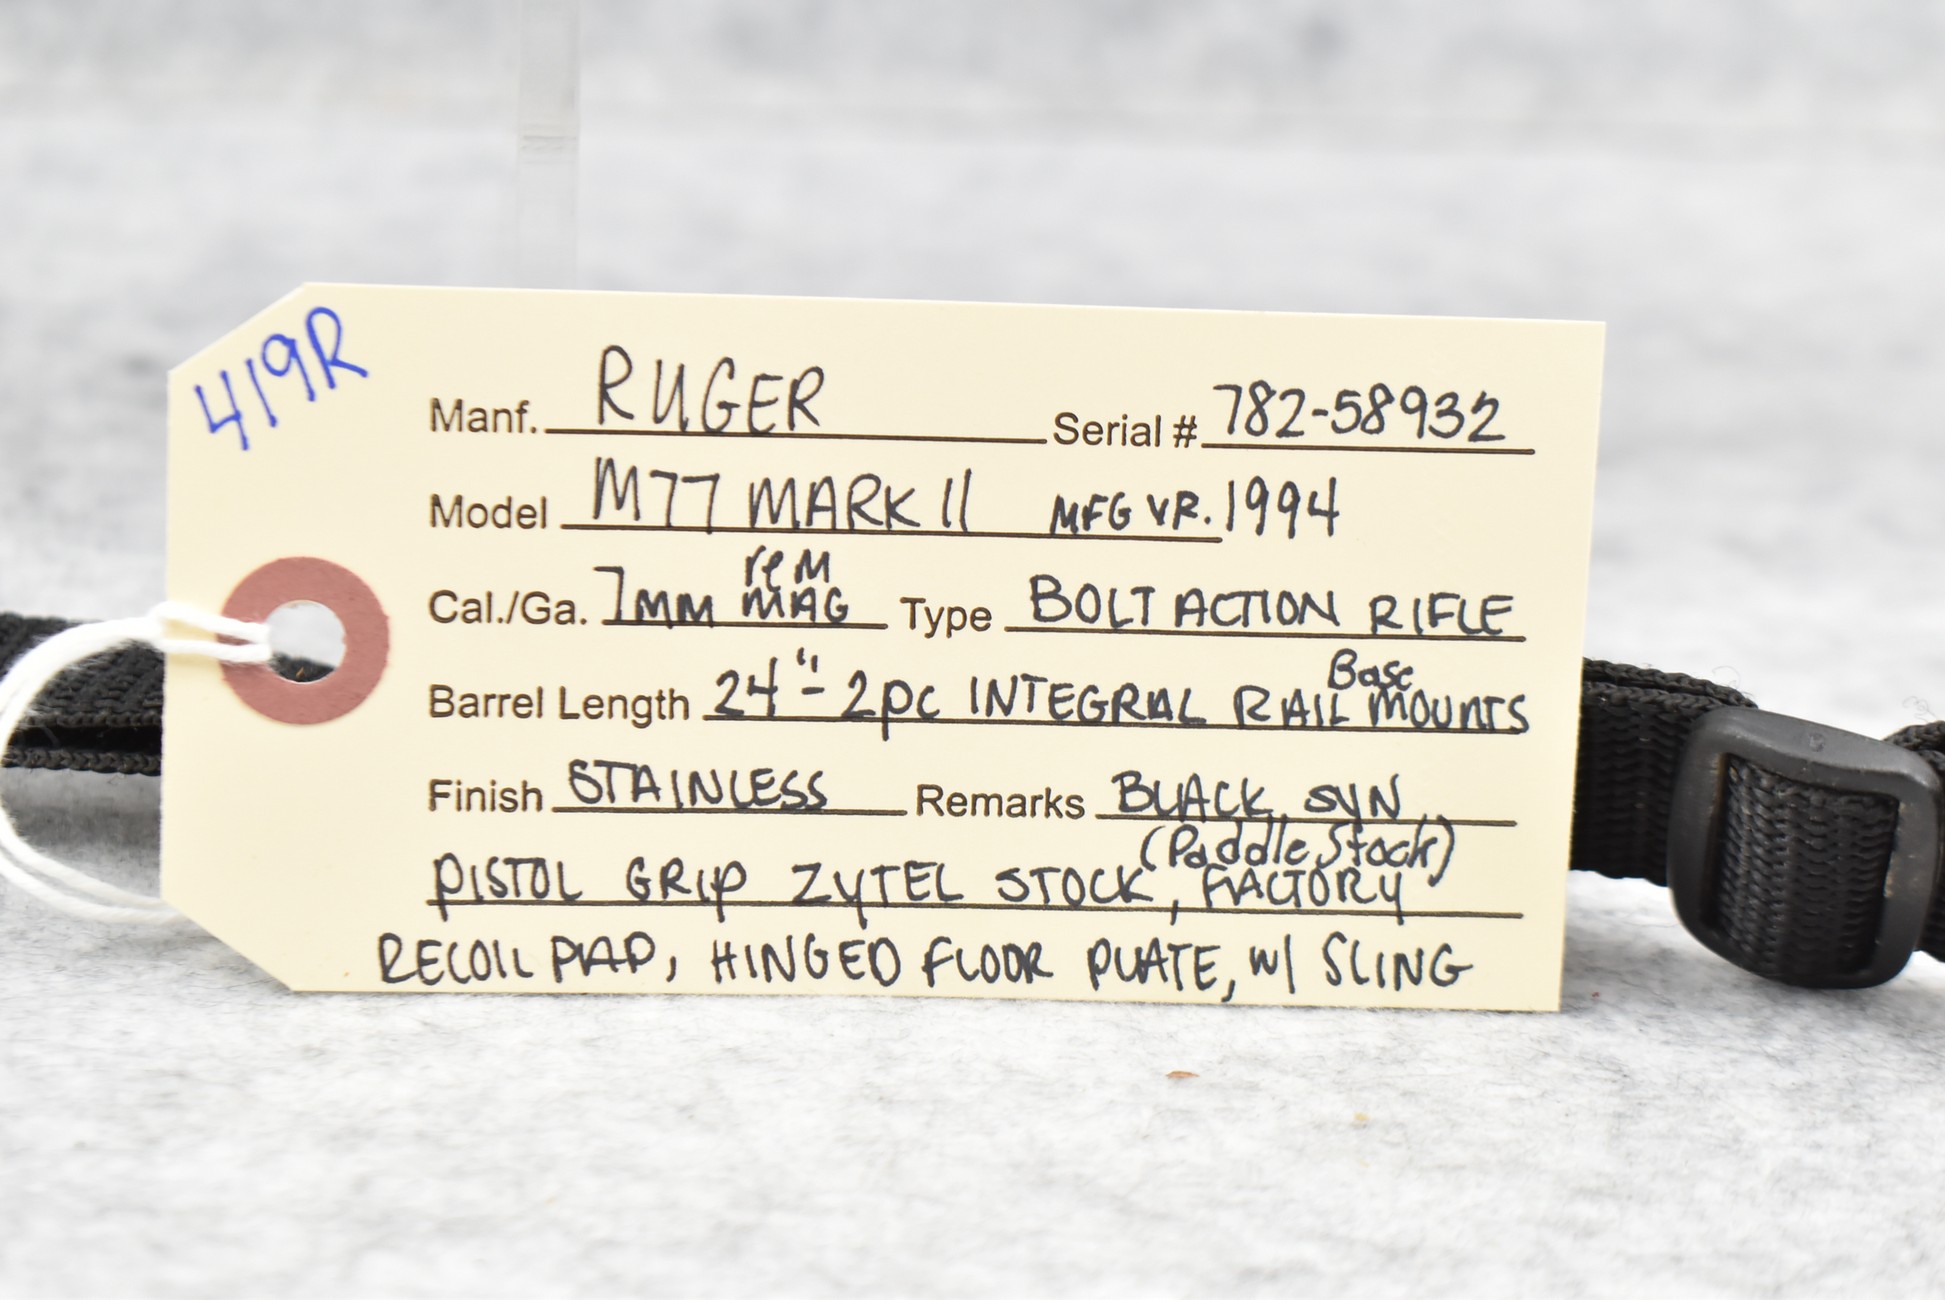 419R
Manf. RUGER Serial # 782-58932
Model M77 MARK II MFG YR. 1994
Cal./Ga. 7MM rem MAG Type BOLT ACTION RIFLE
Barrel Length 24"- 2pc INTEGRAL RAIL Base MOUNTS
Finish STAINLESS Remarks BLACK SYN
(Paddle Stock)
PISTOL GRIP ZYTEL STOCK, FACTORY
RECOIL PAD, HINGED FLOOR PLATE, W/ SLING